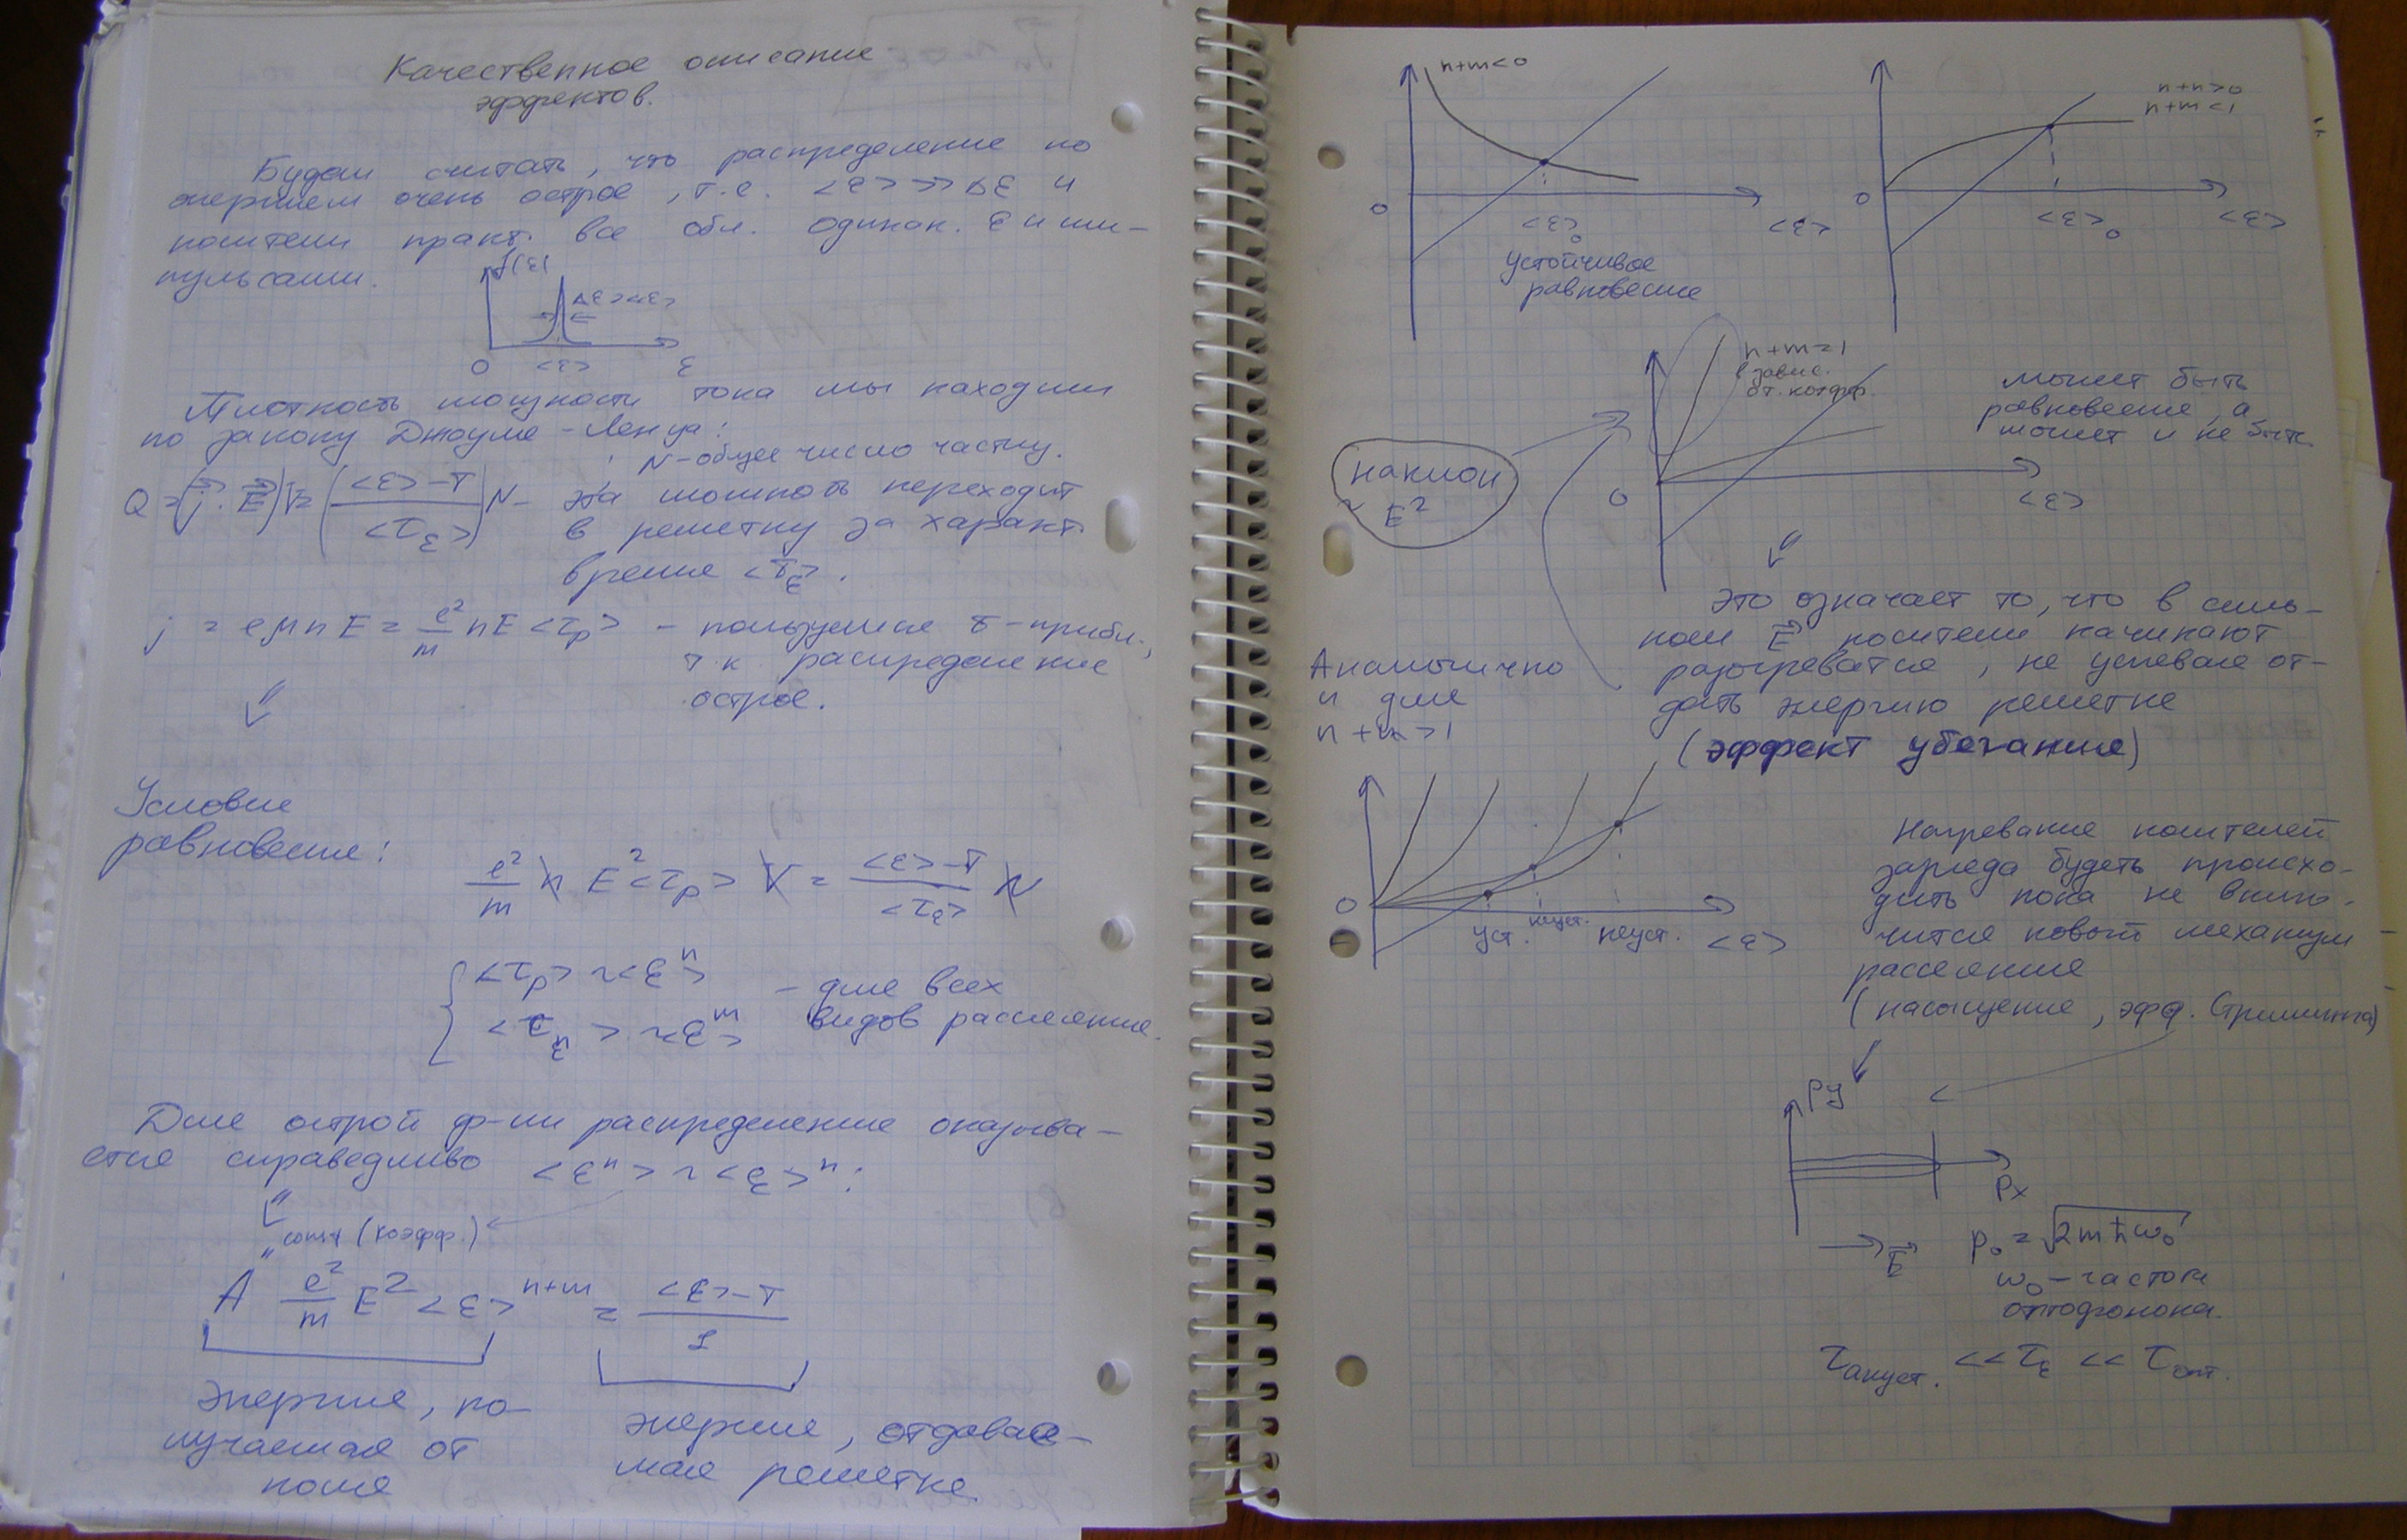 Качественное описание
эффектов.
Будем считать, что распределение по
энергиям очень острое, т.е. <ε> >> Δε и
носители практ. все обл. одинак. ε и им-
пульсами.
f(ε)
Δε><ε>
0 <ε> ε
Плотность мощности тока мы находим
по закону Джоуля-Ленца:
N-общее число частиц.
Q = (j⃗·E⃗)V = ((<ε>-T)/<τ_ε>)N - эта мощность переходит
в решетку за характ.
время <τ_ε>.
j = eμnE = e²/m nE<τ_p> - пользуемся τ-прибл.,
т к распределение
острое.
Условие
равновесия:
e²/m n E²<τ_p> V = (<ε>-T)/<τ_ε> N
<τ_p> ~ <ε^n>
- для всех
<τ_ε> ~ <ε^m>
видов рассеяния.
Для острой ф-ии распределения оказыва-
ется справедливо <ε^n> ~ <ε>^n:
const (коэфф.)
A e²/m E² <ε>^(n+m) = (<ε>-T)/1
энергия, по-
лучаемая от
поля
энергия, отдавае-
мая решетке
n+m<0
0 <ε>₀ <ε>
устойчивое
равновесие
n+n>0
n+m<1
0 <ε>₀ <ε>
n+m=1
в завис.
от. коэфф.
может быть
равновесие, а
может и не быть
наклон
~ E²
0 <ε>
Это означает то, что в силь-
ном E⃗ носители начинают
разогреватся, не успевая от-
дать энергию решетке
(эффект убегания)
Аналогично
и для
n+m>1
0 уст. неуст. неуст. <ε>
Нагревание носителей
заряда будеть происхо-
дить пока не вклю-
чится новый механизм
рассеяния
(насыщение, эфф. Стриминга)
Py
Px
E⃗
p₀ = √(2mħω₀)
ω₀-частота
оптофонона.
τ_акуст. << τ_ε << τ_опт.